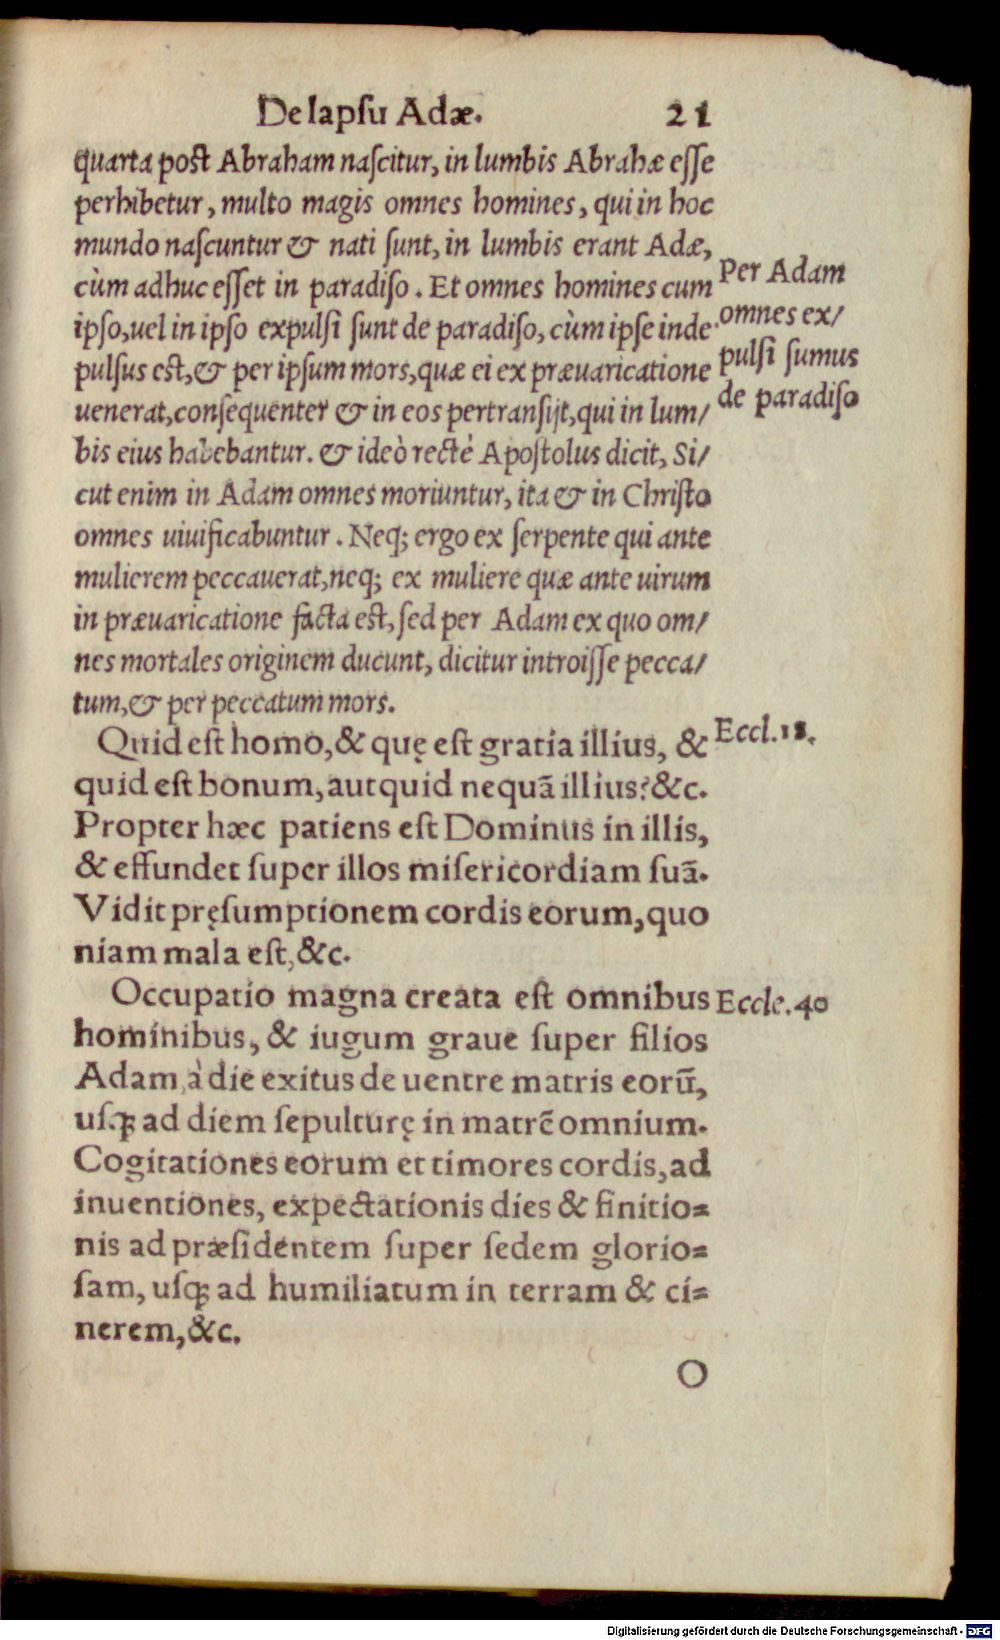 De lapſu Adæ. 21
quarta poſt Abraham naſcitur, in lumbis Abrahæ eſſe
perhibetur, multo magis omnes homines, qui in hoc
mundo naſcuntur & nati ſunt, in lumbis erant Adæ,
cùm adhuc eſſet in paradiſo. Et omnes homines cum
ipſo, uel in ipſo expulſi ſunt de paradiſo, cùm ipſe inde
pulſus eſt, & per ipſum mors, quæ ei ex præuaricatione
uenerat, conſequenter & in eos pertranſijt, qui in lum/
bis eius habebantur. & ideò rectè Apoſtolus dicit, Si/
cut enim in Adam omnes moriuntur, ita & in Chriſto
omnes uiuificabuntur. Neq; ergo ex ſerpente qui ante
mulierem peccauerat, neq; ex muliere quæ ante uirum
in præuaricatione facta eſt, ſed per Adam ex quo om/
nes mortales originem ducunt, dicitur introiſſe pecca/
tum, & per peccatum mors.
Per Adam
omnes ex/
pulſi ſumus
de paradiſo
Quid eſt homo, & quę eſt gratia illius, &
quid eſt bonum, aut quid nequã illius? &c.
Propter hæc patiens eſt Dominus in illis,
& effundet ſuper illos miſericordiam ſuã.
Vidit pręſumptionem cordis eorum, quo
niam mala eſt, &c.
Eccl. 18.
Occupatio magna creata eſt omnibus
hominibus, & iugum graue ſuper filios
Adam, à die exitus de uentre matris eorũ,
uſq; ad diem ſepulturę in matrẽ omnium.
Cogitationes eorum et timores cordis, ad
inuentiones, expectationis dies & finitio=
nis ad præſidentem ſuper ſedem glorio=
ſam, uſq; ad humiliatum in terram & ci=
nerem, &c.
Eccle. 40
O
Digitalisierung gefördert durch die Deutsche Forschungsgemeinschaft - DFG